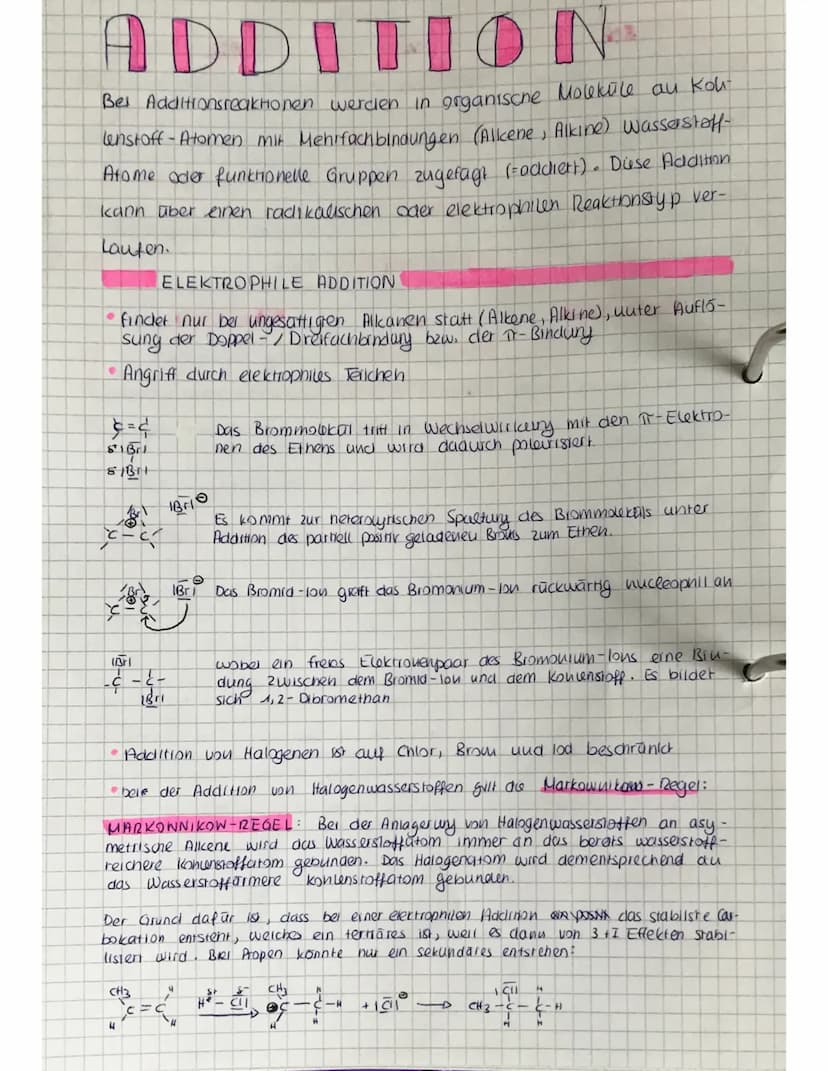 ADDITION
Bei Additionsreaktionen werden in organische Moleküle an Koh-
lenstoff-Atomen mit Mehrfachbindungen (Alkene, Alkine) Wasserstoff-
Atome oder funktionelle Gruppen zugefügt (=addiert). Diese Addition
kann über einen radikalischen oder elektrophilen Reaktionstyp ver-
laufen.
ELEKTROPHILE ADDITION
• findet nur bei ungesättigten Alkanen statt (Alkene, Alkine), unter Auflö-
sung der Doppel-/Dreifachbindung bzw. der π-Bindung
• Angriff durch elektrophiles Teilchen
C=C
δ+ |Br|
δ- |Br|
Das Brommolekül tritt in Wechselwirkung mit den π-Elektro-
nen des Ethens und wird dadurch polarisiert
|Br| ⊖
Br ⊕
C - C
Es kommt zur heterolytischen Spaltung des Brommoleküls unter
Addition des partiell positiv geladenen Broms zum Ethen.
Br ⊕ |Br| ⊖
C - C
Das Bromid-Ion greift das Bromonium-Ion rückwärtig nucleophil an
|Br|
-C - C-
|Br|
wobei ein freies Elektronenpaar des Bromonium-Ions eine Bin-
dung zwischen dem Bromid-Ion und dem Kohlenstoff. Es bildet
sich 1,2-Dibromethan
• Addition von Halogenen ist auf Chlor, Brom und Iod beschränkt
• beie der Addition von Halogenwasserstoffen gilt die Markownikow-Regel:
MARKONNIKOW-REGEL: Bei der Anlagerung von Halogenwasserstoffen an asy-
metrische Alkene wird das Wasserstoffatom immer an das bereits wasserstoff-
reichere Kohlenstoffatom gebunden. Das Halogenatom wird dementsprechend an
das Wasserstoffärmere Kohlenstoffatom gebunden.
Der Grund dafür ist, dass bei einer elektrophilen Addition das stabilste Car-
bokation entsteht, welches ein ternäres ist, weil es dann von 3 +I Effekten stabi-
lisiert wird. Bei Propen könnte nur ein sekundäres entstehen:
CH3 H δ+ δ- CH3 H |Cl| H
C=C H - Cl| ⊕C - C - H + |Cl| ⊖ → CH3 - C - C - H
H H H H H H